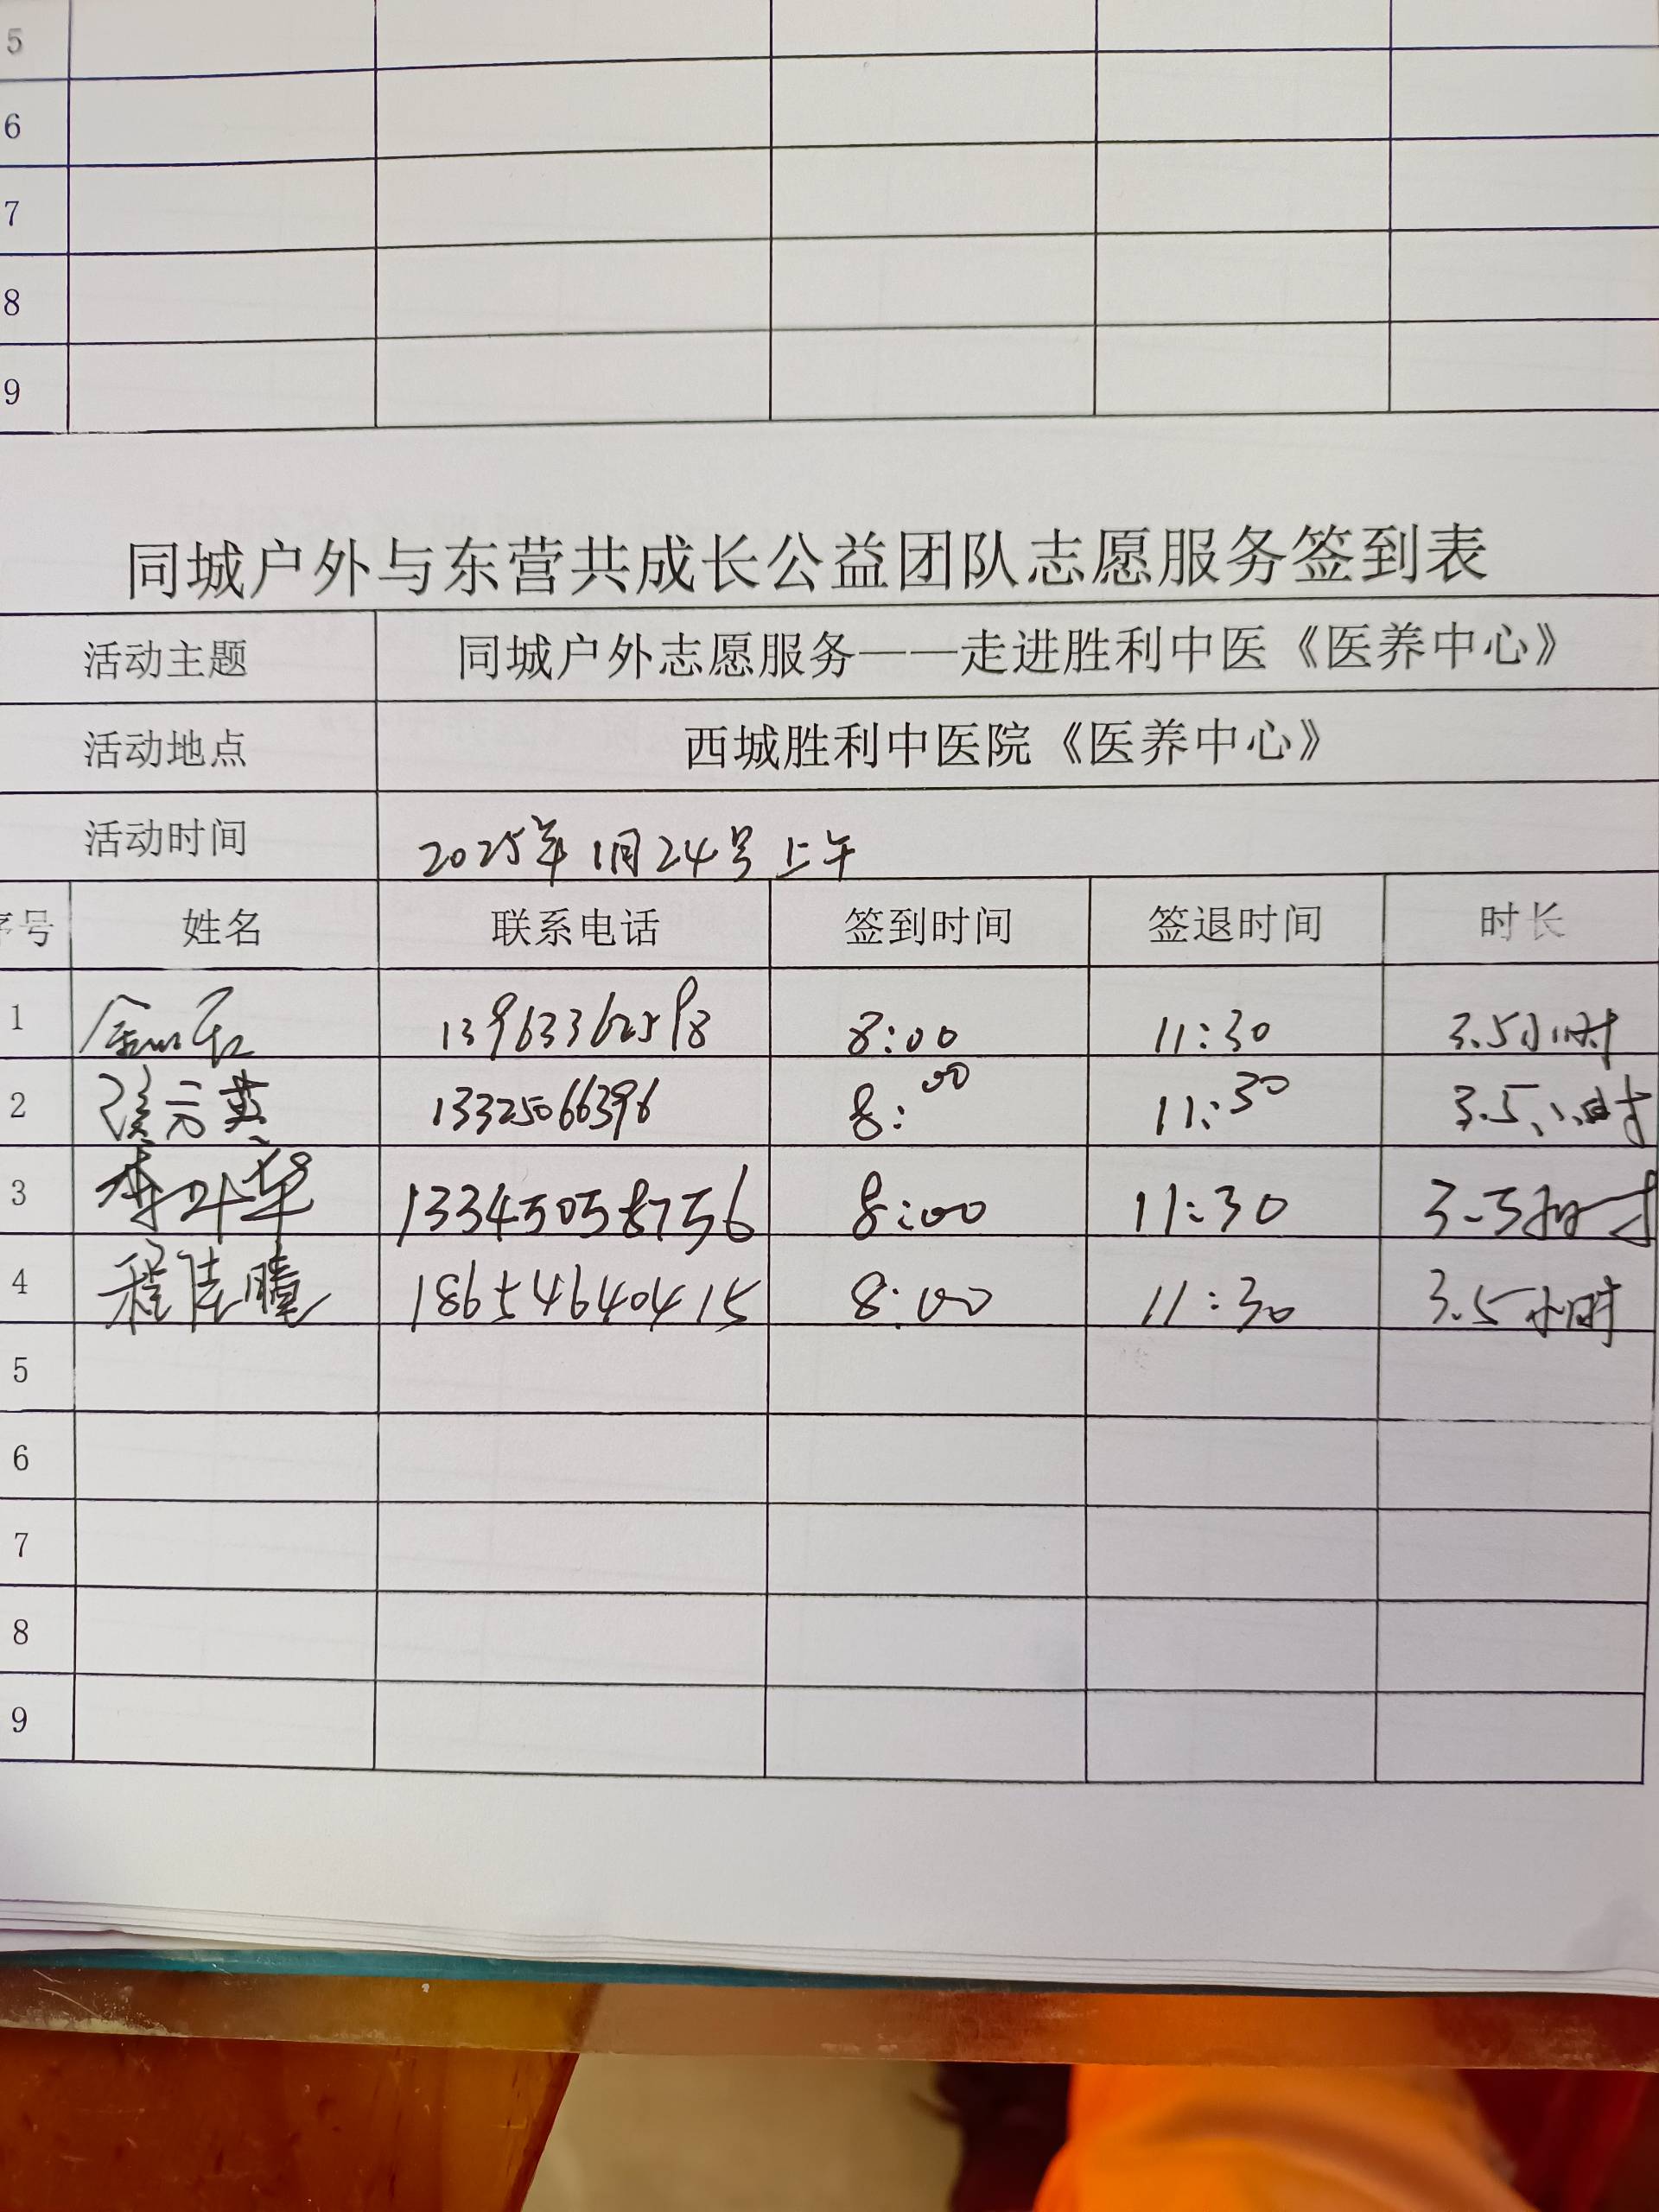 5
6
7
8
9
同城户外与东营共成长公益团队志愿服务签到表
活动主题 同城户外志愿服务——走进胜利中医《医养中心》
活动地点 西城胜利中医院《医养中心》
活动时间 2025年1月24号上午
序号 姓名 联系电话 签到时间 签退时间 时长
1 13963362598 8:00 11:30 3.5小时
2 13325066396 8:00 11:30 3.5小时
3 李叶华 13345058756 8:00 11:30 3.5小时
4 程佳腾 18654640415 8:00 11:30 3.5小时
5
6
7
8
9